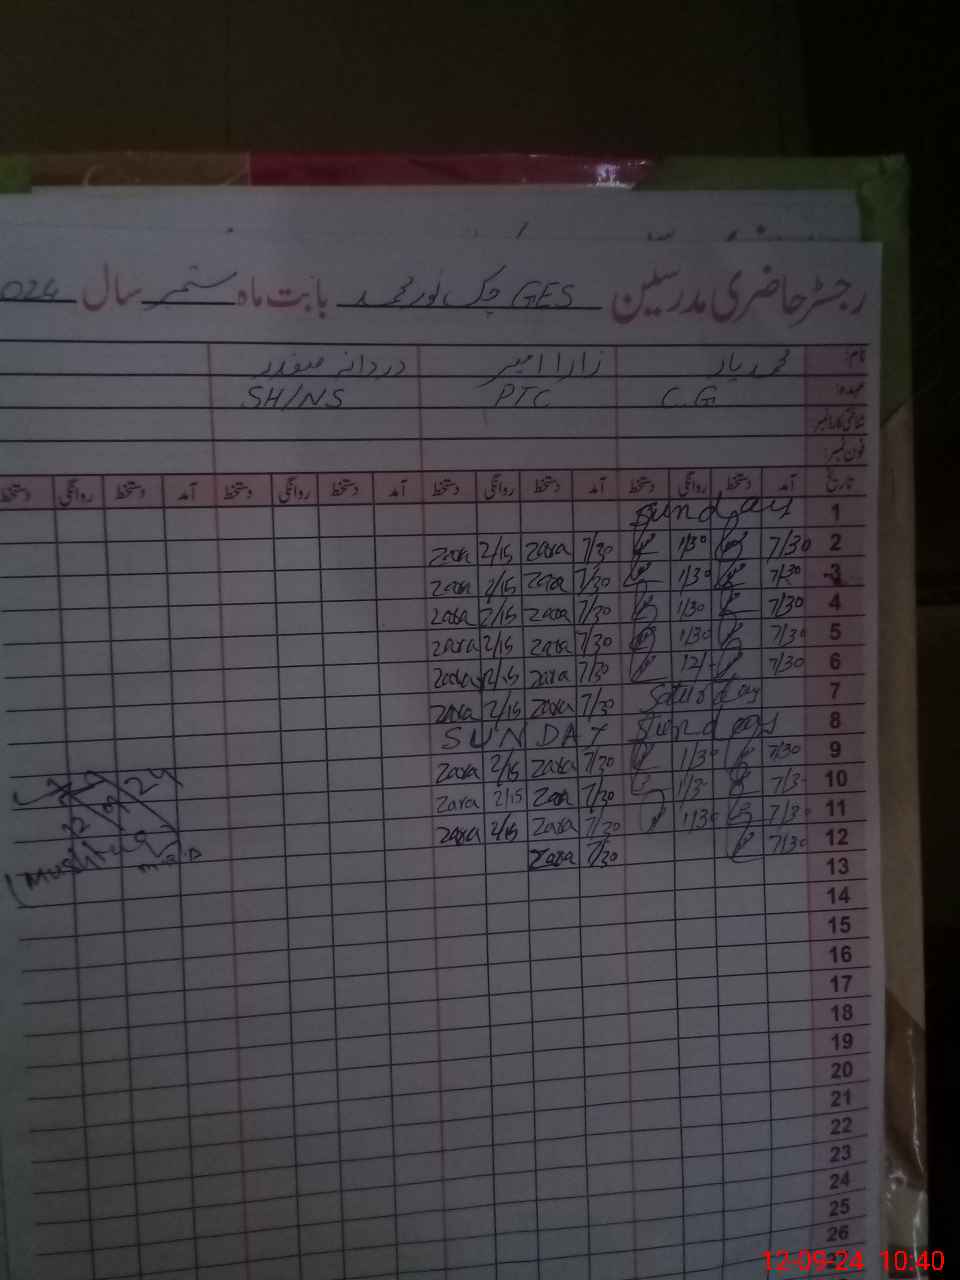 رجسٹر حاضری مدرسین GES چک نور محمد بابت ماہ ستمبر سال 024
نام: محمد یار زارا امیر دردانہ صفدر
عہدہ: C.G PTC SH/NS
شناختی کارڈ نمبر
فون نمبر:
تاریخ آمد دستخط روانگی دستخط آمد دستخط روانگی دستخط آمد دستخط روانگی دستخط دستخط روانگی دستخط
1 Sunday
2 7/30 1/30 7/30 Zara 2/15 Zara
3 7/30 1/30 7/30 Zara 2/15 Zara
4 7/30 1/30 7/30 Zara 2/15 Zara
5 7/30 1/30 7/30 Zara 2/15 Zara
6 7/30 12/- 7/30 Zara 2/15 Zara
7 Saturday 7/30 Zara 2/15 Zara
8 Sunday SUNDAY
9 7/30 1/30 7/30 Zara 2/15 Zara
10 7/3- 1/3- 7/30 Zara 2/15 Zara
11 7/30 1/30 7/30 Zara 2/15 Zara
12 7/30 7/30 Zara
13
14
15
16
17
18
19
20
21
22
23
24
25
26
12-09-24 10:40